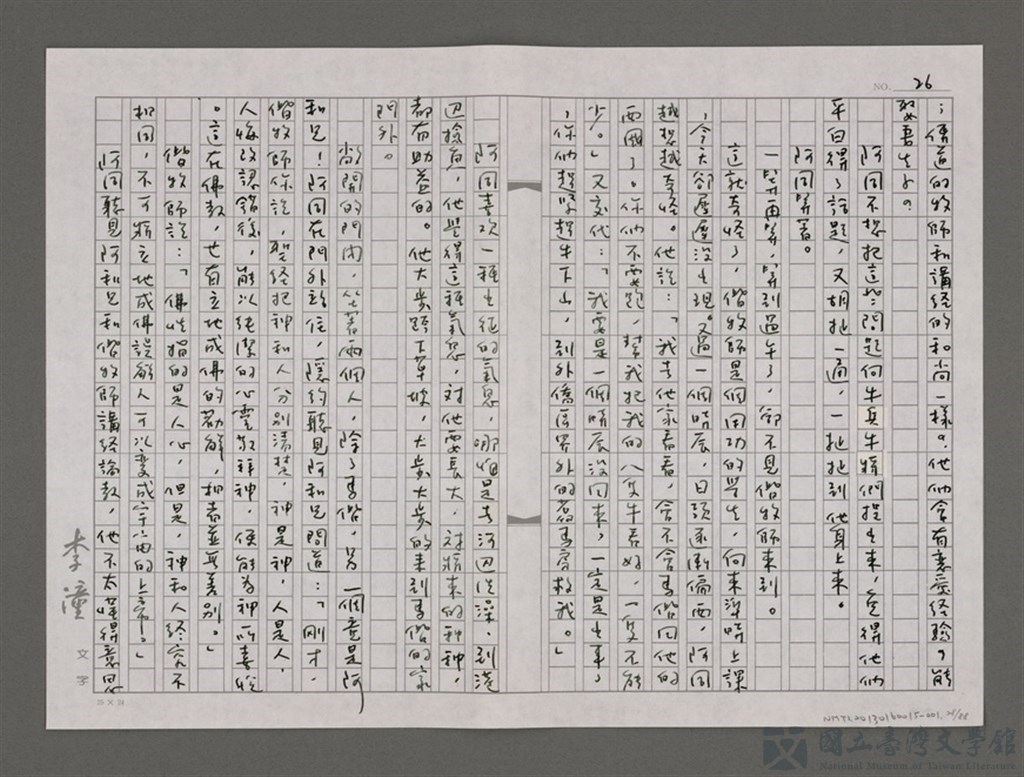 NO. 26
；傳道的牧師和講經的和尚一樣？他們會有戀愛經驗？能
娶妻生子？
阿同不想把這些問題向牛兵牛將們提出來，免得他們
平白得了話題，又胡扯一通，一扯扯到他身上來。
阿同等著。
一等再等，等到過午了，卻不見偕牧師來到。
這就奇怪了，偕牧師是個用功的學生，向來準時上課
，今天卻遲遲沒出現。又過一個時辰，日頭逐漸偏西，阿同
越想越奇怪。他說：「我去他家看看，會不會馬偕回他的
西國了。你們不要跑，幫我把我的八隻牛看好，一隻不能
少。」又交代：「我要是一個時辰沒回來，一定是出事，
，你們趕緊趕牛下山，到外僑區界外的舊馬房救我。」
阿同喜歡一種生疏的氣息，哪怕是去河邊洗澡、到港
邊撿魚，他覺得這種氣息，對他要長大，對將來的種種，
都有助益的。他大步跨下草坡，大步大步的來到馬偕的家
門外。
敞開的門內，坐著兩個人，除了馬偕，另一個竟是阿
和兄！阿同在門外站住，隱約聽見阿和兄問道：「剛才，
偕牧師你說，聖經把神和人分別清楚，神是神，人是人，
人悔改認錯後，能以純潔的心靈敬拜神，便能為神所喜悅
。這在佛教，也有立地成佛的勸解，相當並無差別。」
偕牧師說：「佛性指的是人心，但是，神和人終究不
相同，不可將立地成佛誤解人可以變成宇宙的上帝。」
阿同聽見阿和兄和偕牧師講經論教，他不太懂得意思
李潼
文子
25 × 24
NMTL20130160015-001, 26/88
國立臺灣文學館
National Museum of Taiwan Literature